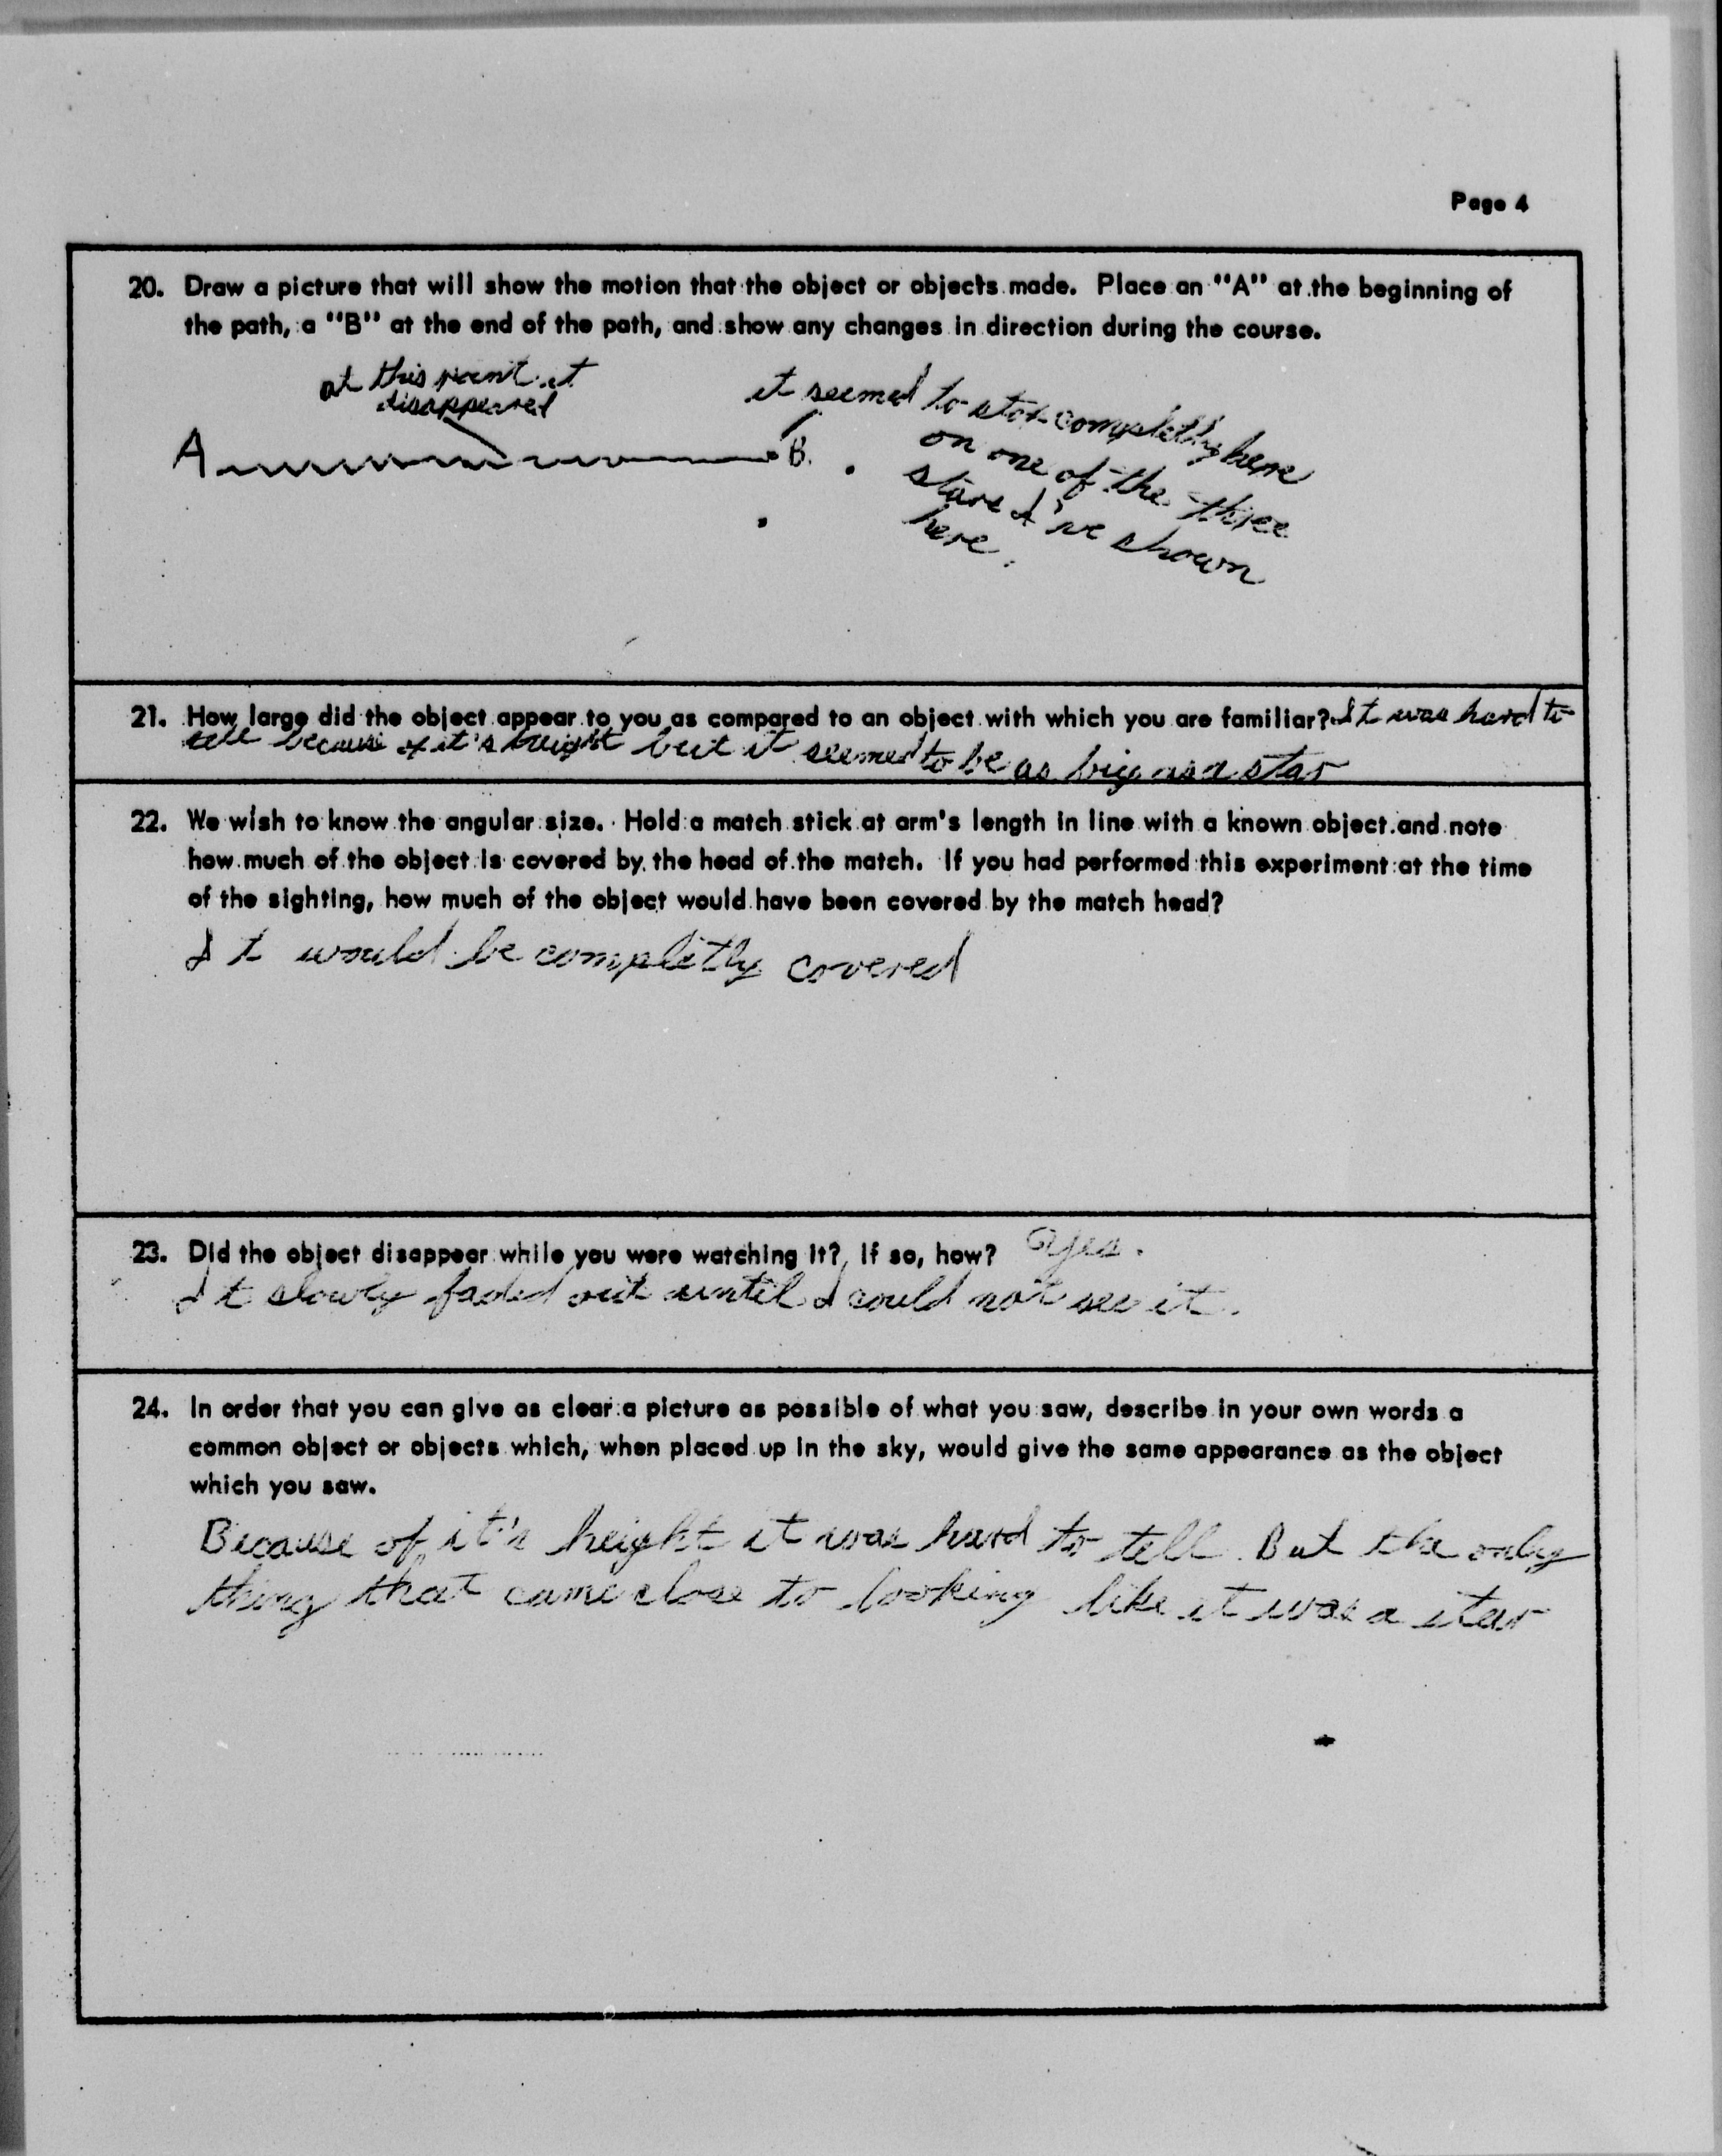 Page 4
20. Draw a picture that will show the motion that the object or objects made. Place an "A" at the beginning of
the path, a "B" at the end of the path, and show any changes in direction during the course.
at this point it
disappeared
A
B.
it seemed to stop completly here
on one of the three
stars I've shown
here.
21. How large did the object appear to you as compared to an object with which you are familiar? It was hard to
tell because of it's height but it seemed to be as big as a star
22. We wish to know the angular size. Hold a match stick at arm's length in line with a known object and note
how much of the object is covered by the head of the match. If you had performed this experiment at the time
of the sighting, how much of the object would have been covered by the match head?
It would be completly covered
23. Did the object disappear while you were watching it? If so, how? Yes.
It slowly faded out until I could not see it.
24. In order that you can give as clear a picture as possible of what you saw, describe in your own words a
common object or objects which, when placed up in the sky, would give the same appearance as the object
which you saw.
Because of it's height it was hard to tell. But the only
thing that came close to looking like it was a star